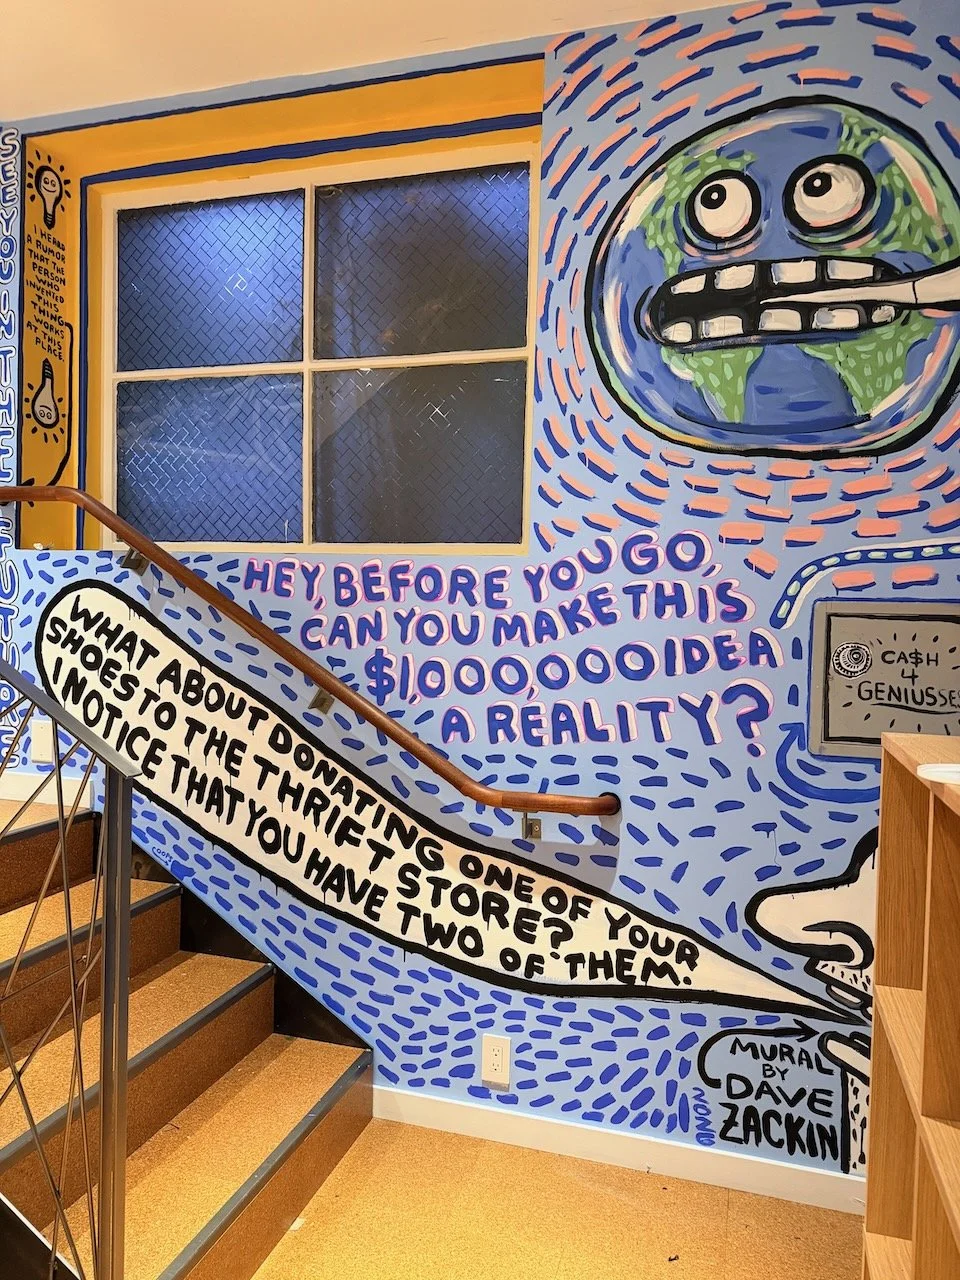 SEE YOU IN THE FUTURE
I HEARD
A RUMOR
THAT THE
PERSON
WHO
INVENTED
THIS
THING
WORKS
AT THIS
PLACE.
HEY, BEFORE YOU GO,
CAN YOU MAKE THIS
$1,000,000 IDEA
A REALITY?
CA$H
4
GENIUSSES
WHAT ABOUT DONATING ONE OF YOUR
SHOES TO THE THRIFT STORE?
I NOTICE THAT YOU HAVE TWO OF THEM.
MURAL
BY
DAVE
ZACKIN